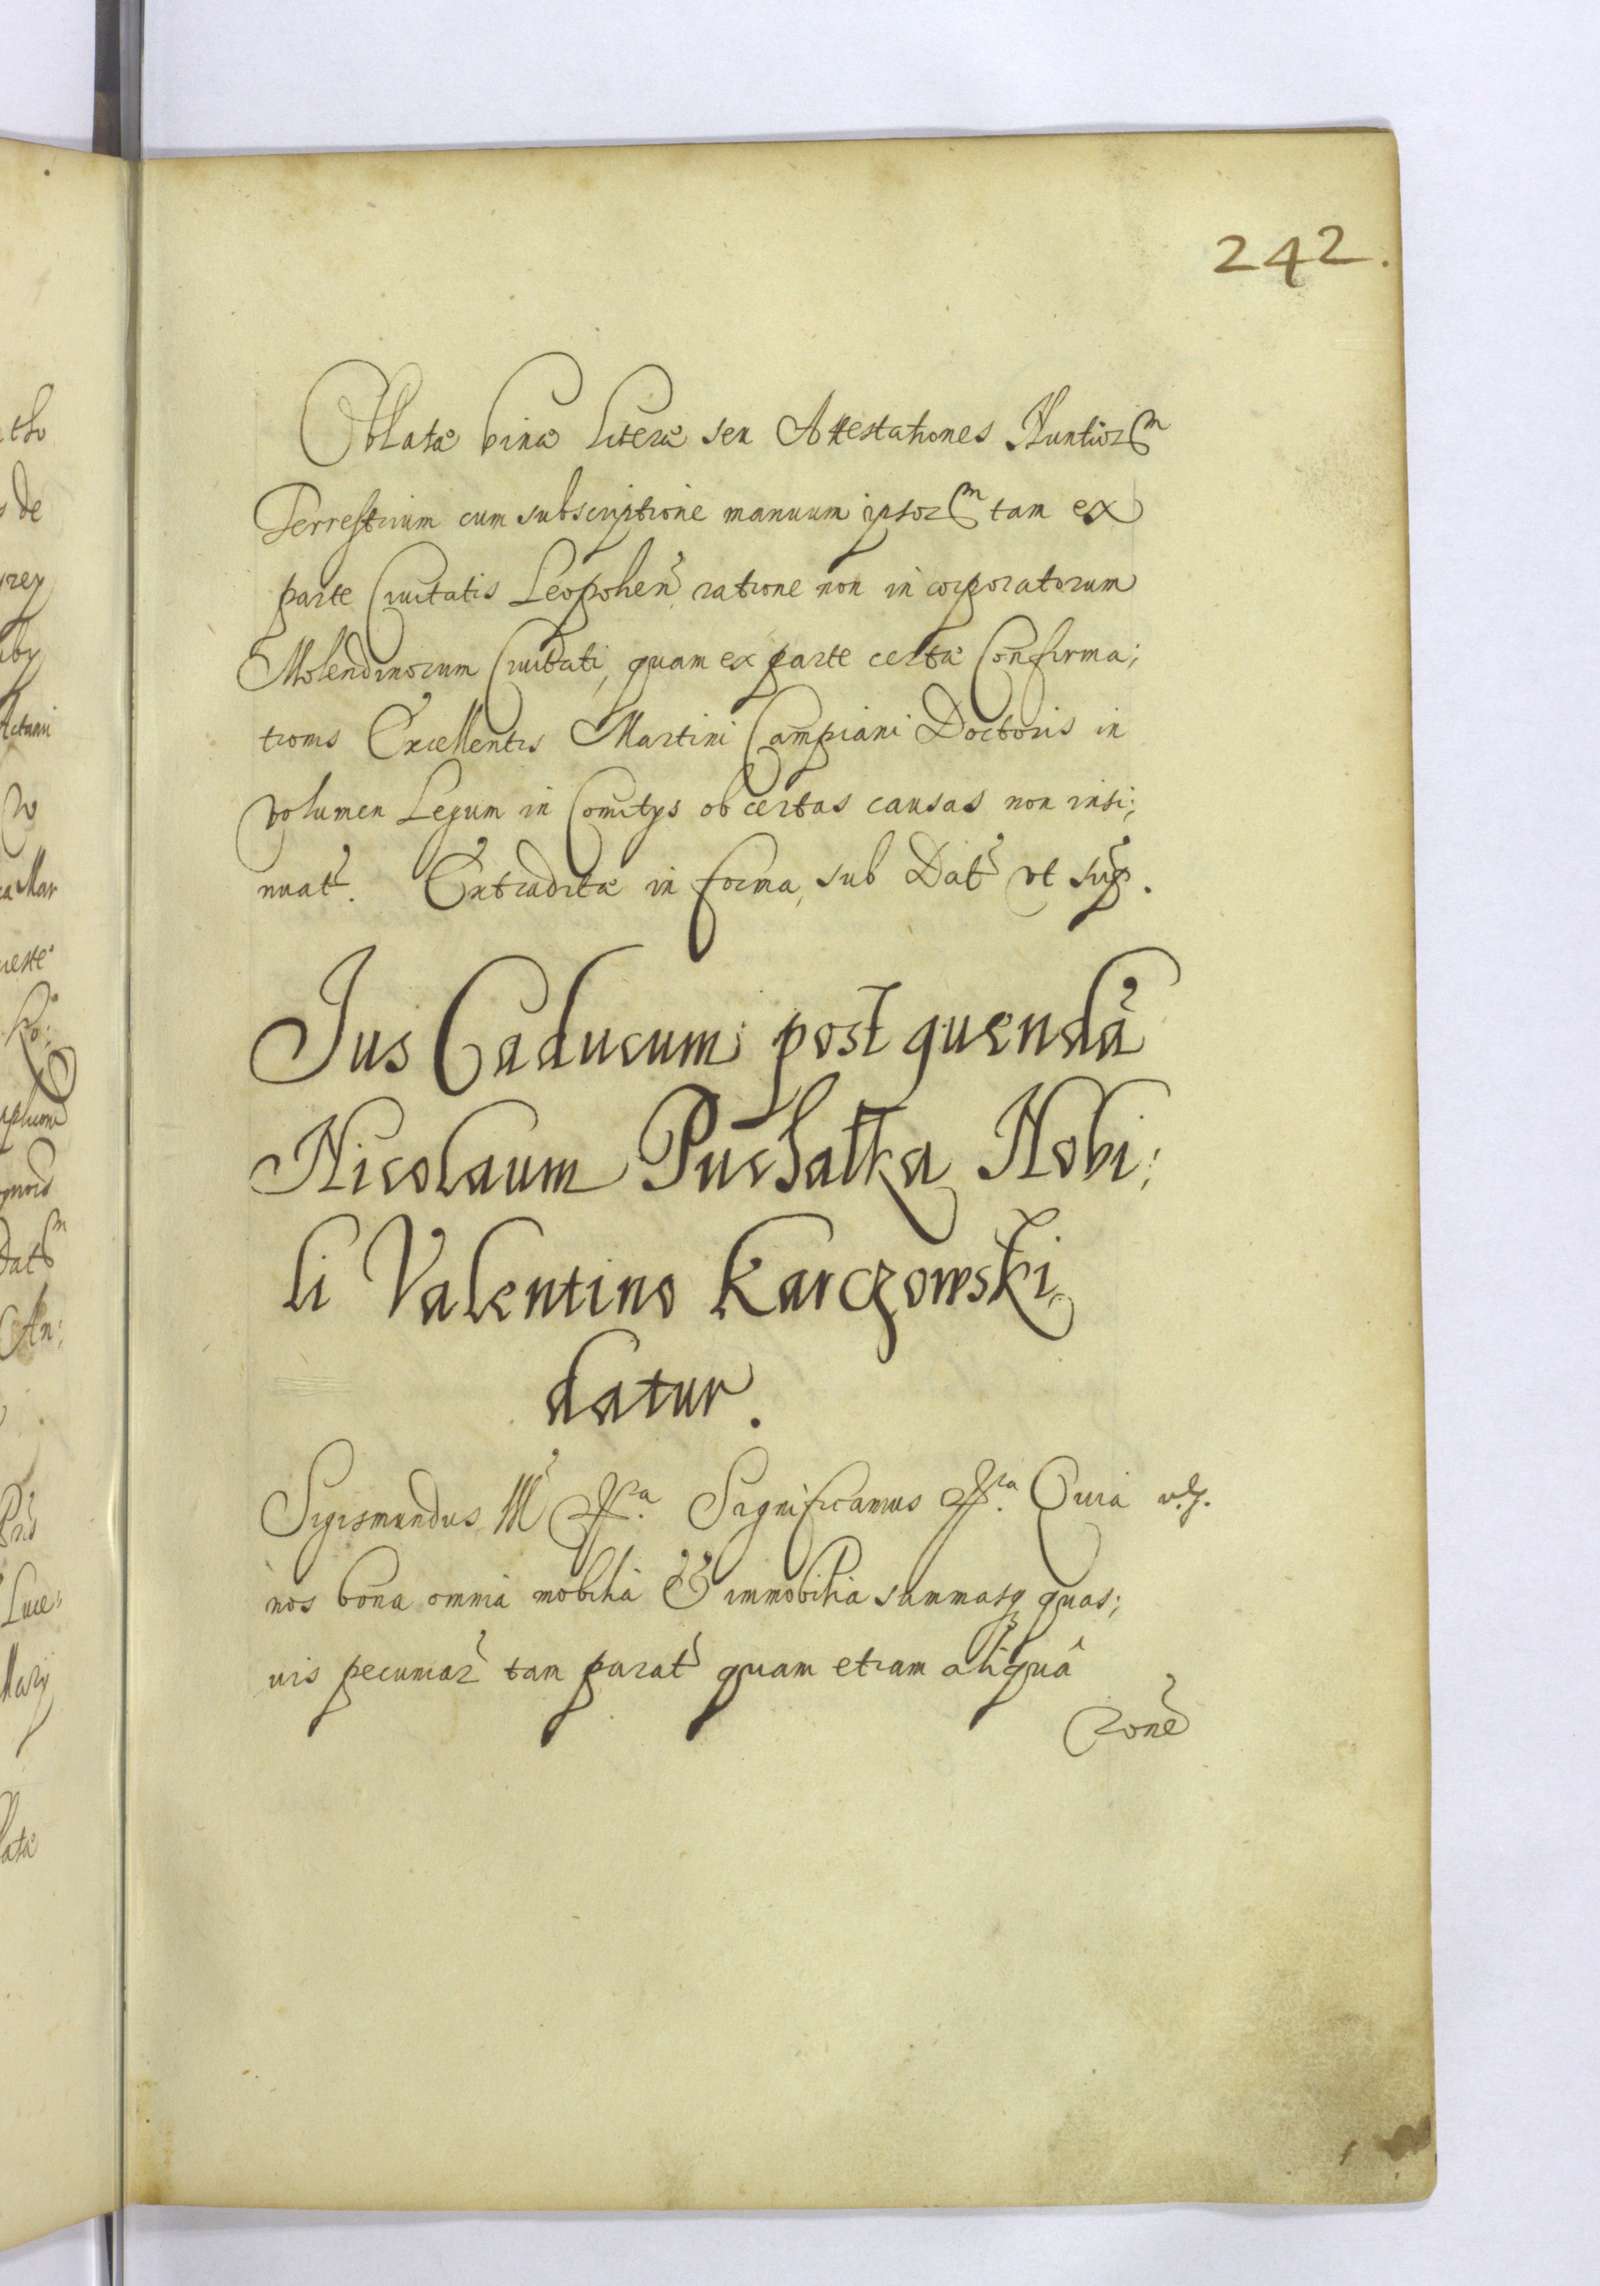 242.
Oblatæ binæ Literæ seu Attestationes Nuntior̃m
Terrestrium cum subscriptione manuum ipsor̃m tam ex
parte Ciuitatis Leopolien̄ ratione non incorporatorum
Molendinorum Ciuitati, quam ex parte certæ Confirma;
tionis Excellentis Martini Campiani Doctoris in
volumen Legum in Comitys ob certas causas non insi;
nuat̃. Extraditæ in forma, sub Dat̃ vt sup̃.
Jus Caducum post quendã
Nicolaum Puchałka Nobi;
li Valentino Karczowski
datur.
Sigismundus III Significamus Quia
nos bona omnia mobilia & immobilia summasq₃ quas;
uis pecuniar̃ tam parat̃ quam etiam aliquâ
r̃one